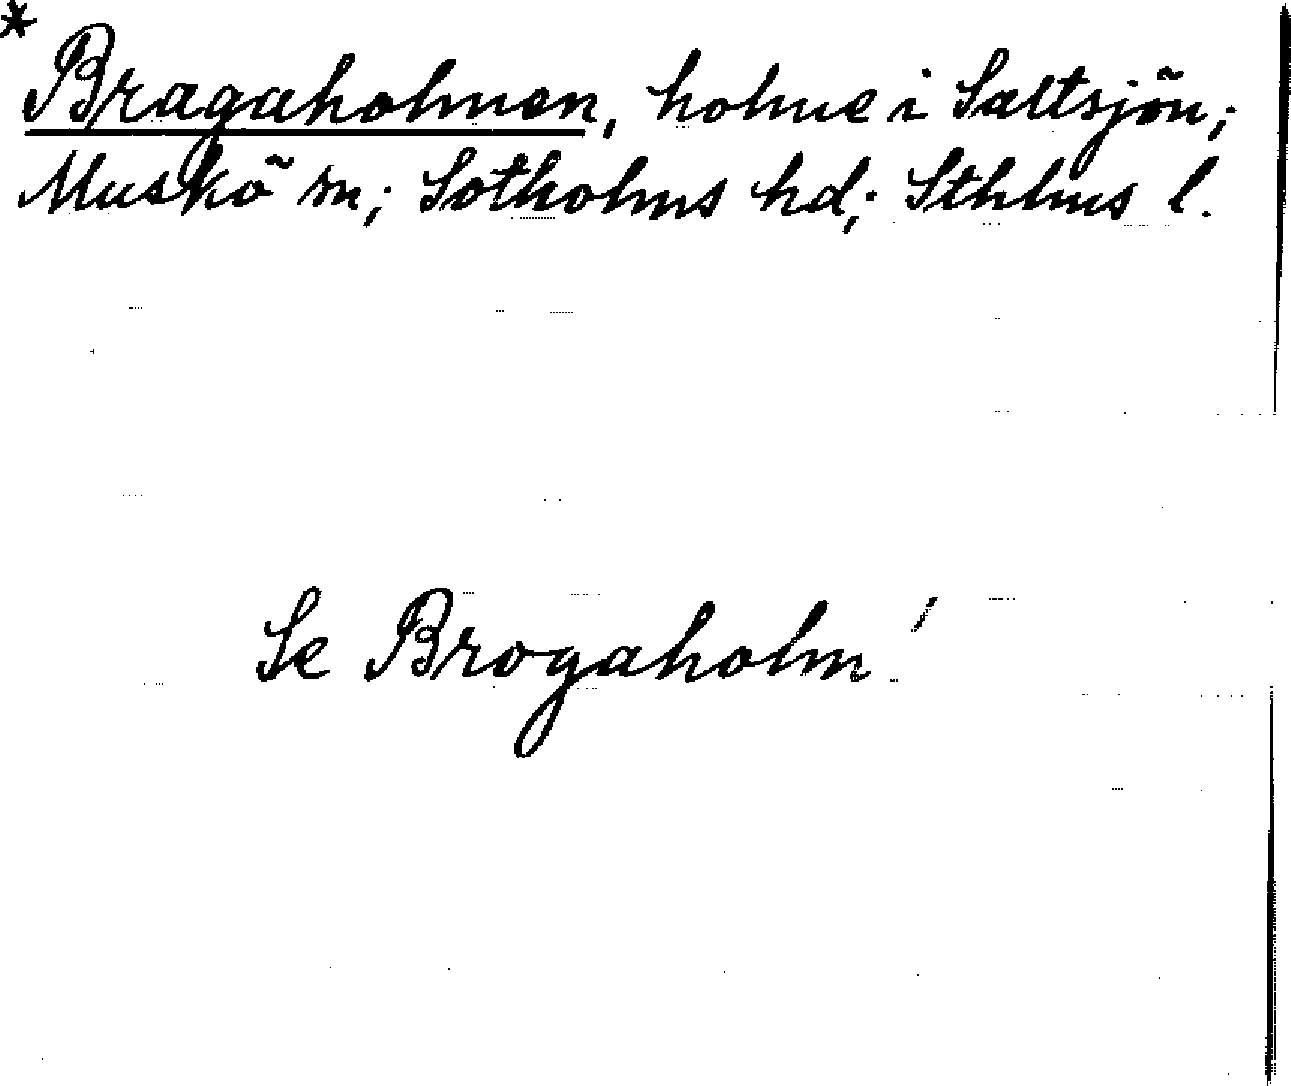 * Bragaholmen, holme i Saltsjön;
Muskö sn; Sotholms hd; Sthlms l.
Se Brogaholm!